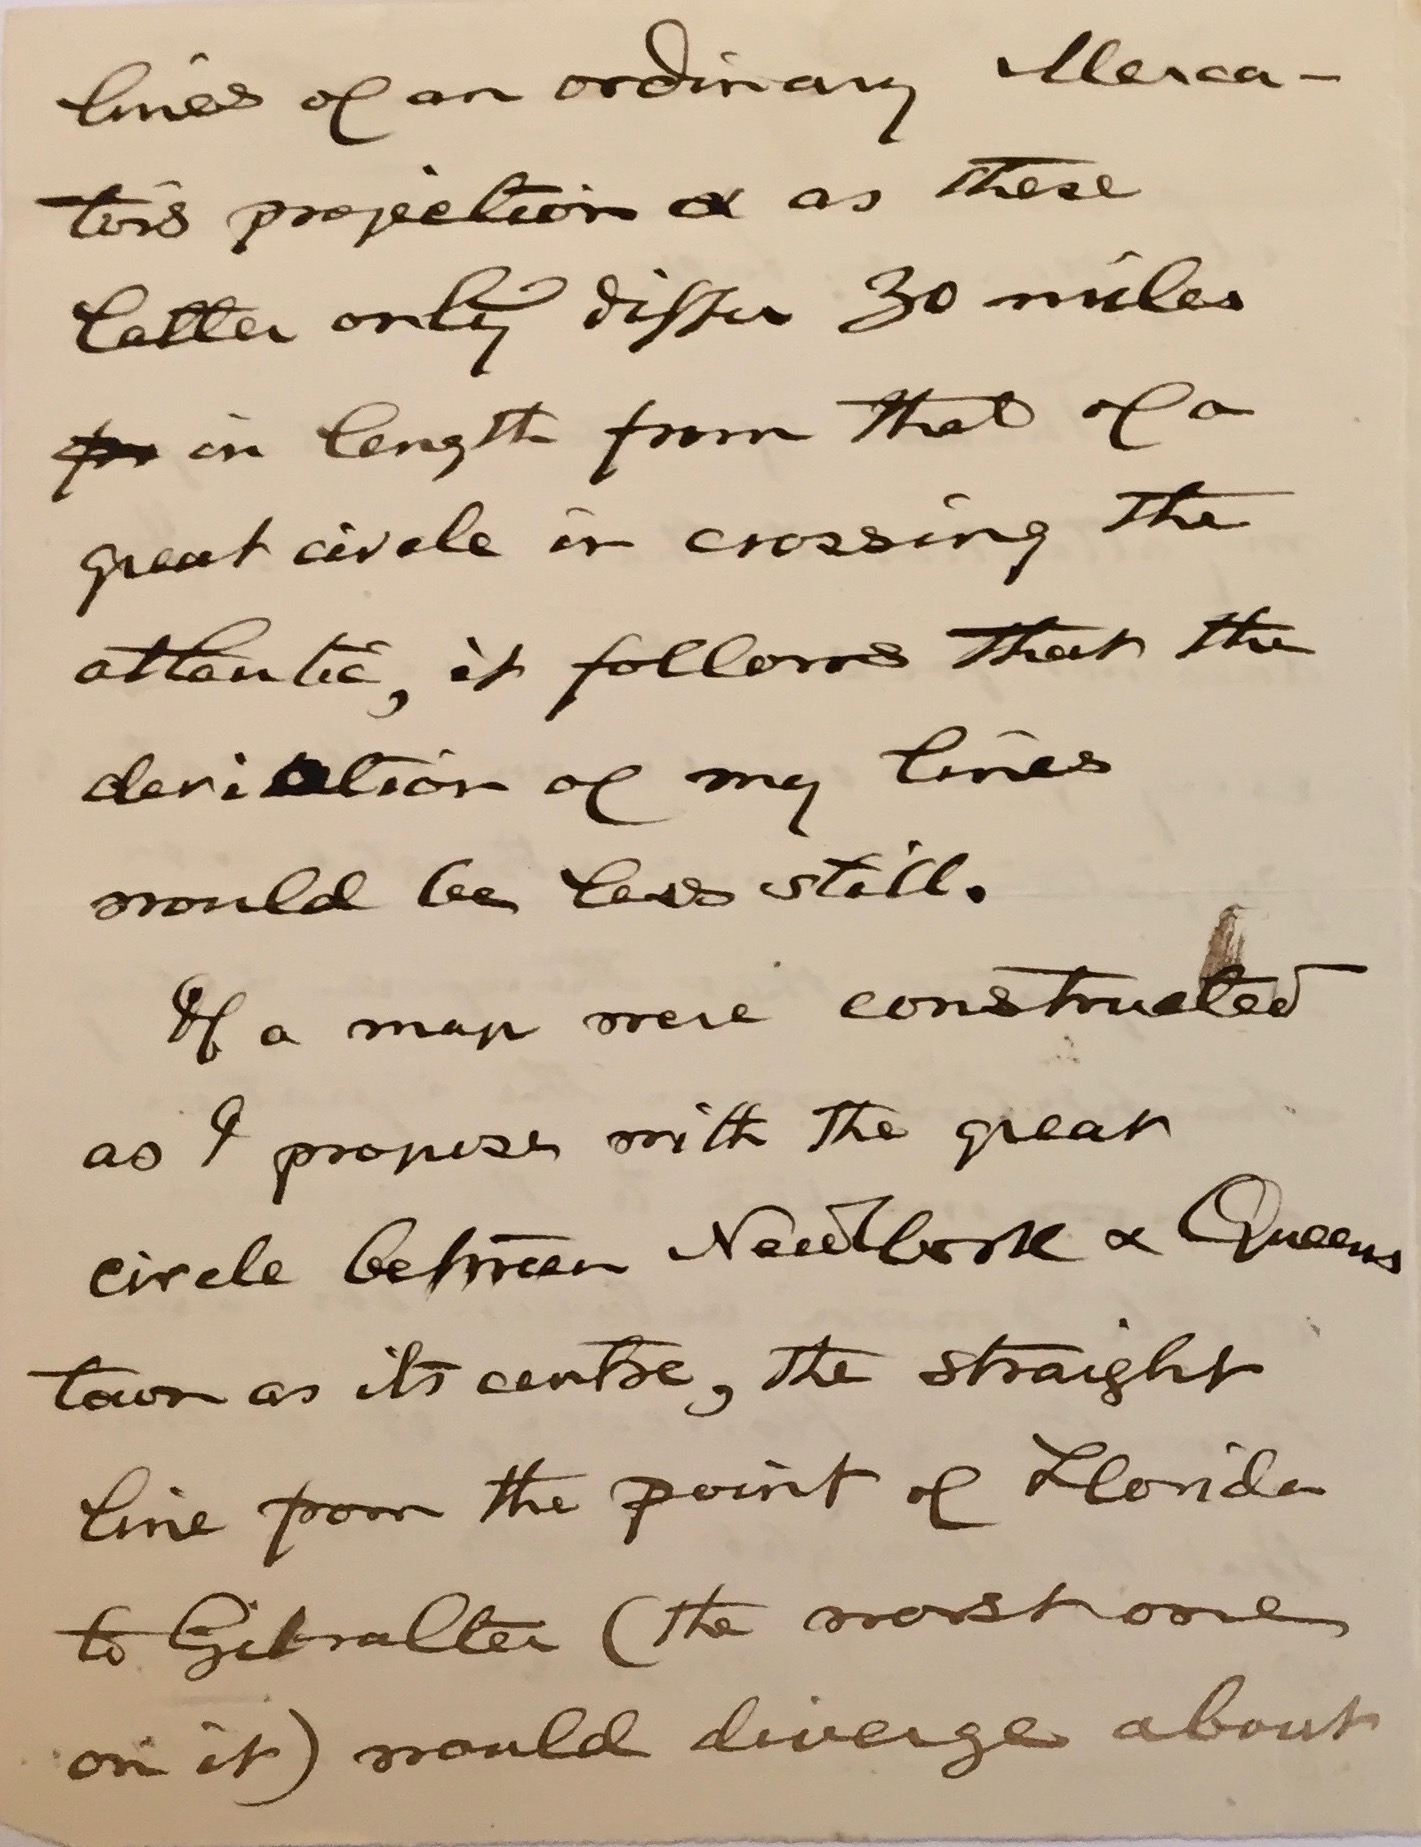 lines of an ordinary Merca-
tors projection & as these
latter only differ 30 miles
in length from that of a
great circle in crossing the
atlantic, it follows that the
deviation of my lines
would be less still.
If a map were constructed
as I propose with the great
circle between New York & Queens
town as its centre, the straight
line from the point of Florida
to Gibralter (the worst one
on it) would diverge about